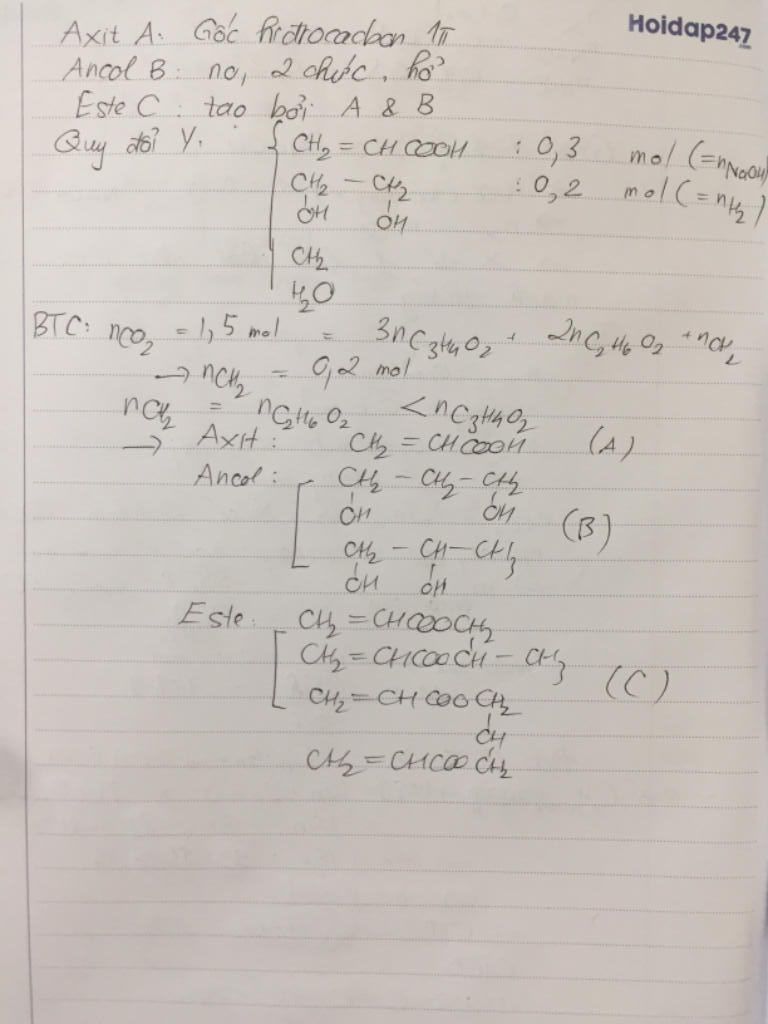 Hoidap247
Axit A: Gốc hidrocacbon 1π
Ancol B: no, 2 chức, hở
Este C: tạo bởi A & B
Quy đổi Y. { CH2 = CHCOOH : 0,3 mol (=nNaOH)
CH2 - CH2 : 0,2 mol (= nH2)
OH OH
CH2
H2O
BTC: nCO2 = 1,5 mol = 3nC3H4O2 + 2nC2H6O2 + nCH2
→ nCH2 = 0,2 mol
nCH2 = nC2H6O2 < nC3H4O2
→ Axit: CH2 = CHCOOH (A)
Ancol: [ CH2 - CH2 - CH2
OH OH (B)
CH2 - CH - CH3
OH OH
Este: CH2 = CHCOOCH2
[ CH2 = CHCOOCH - CH3 (C)
CH2 = CHCOOCH2
CH
CH2 = CHCOOCH2